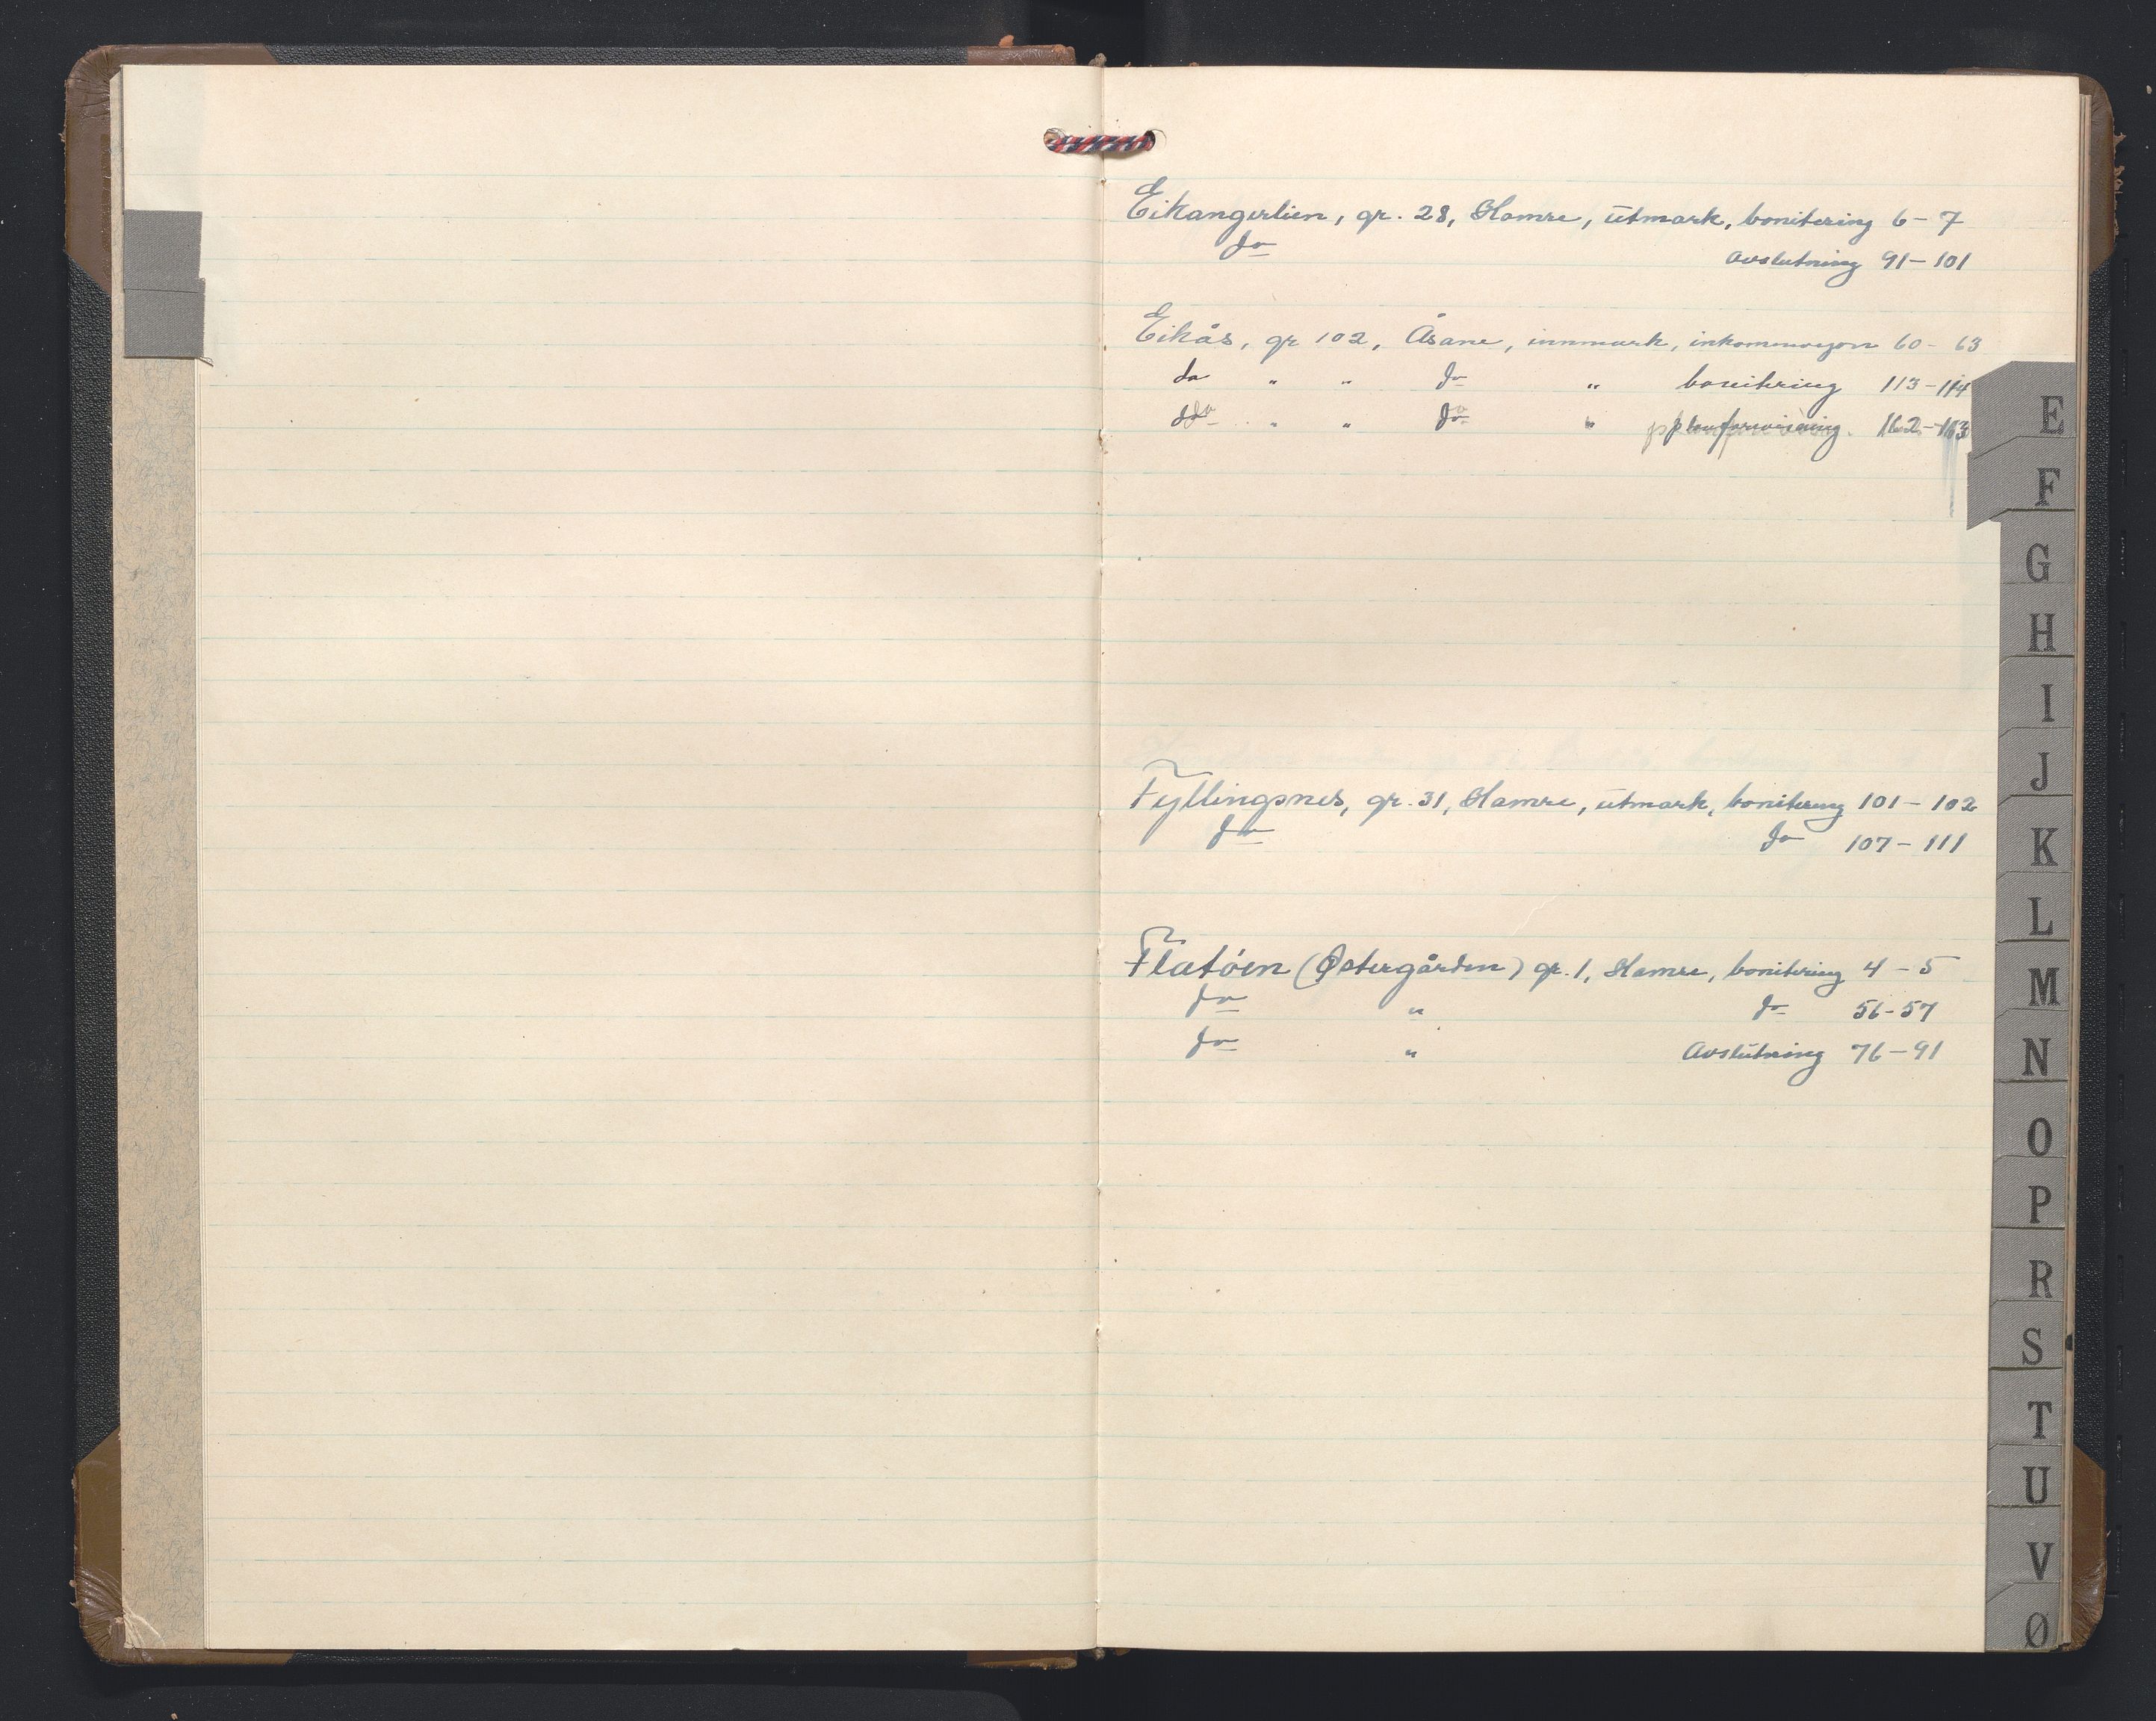 Eikangerlien, gr. 28, Hamre, utmark, bonitering 6 - 7
do avslutning 91 - 101
Eikås, gr 102, Åsane, innmark, 60 - 63
do " " do " bonitering 113 - 114
do " " do " planforvisning. 162 - 163
Fyllingsnes, gr. 31, Hamre, utmark, bonitering 101 - 102
do do 107 - 111
Flatöen (Østergården) gr. 1, Hamre, bonitering 4 - 5
do " do 56 - 57
do " Avslutning 76 - 91
E
F
G
H
I
J
K
L
M
N
O
P
R
S
T
U
V
Ø